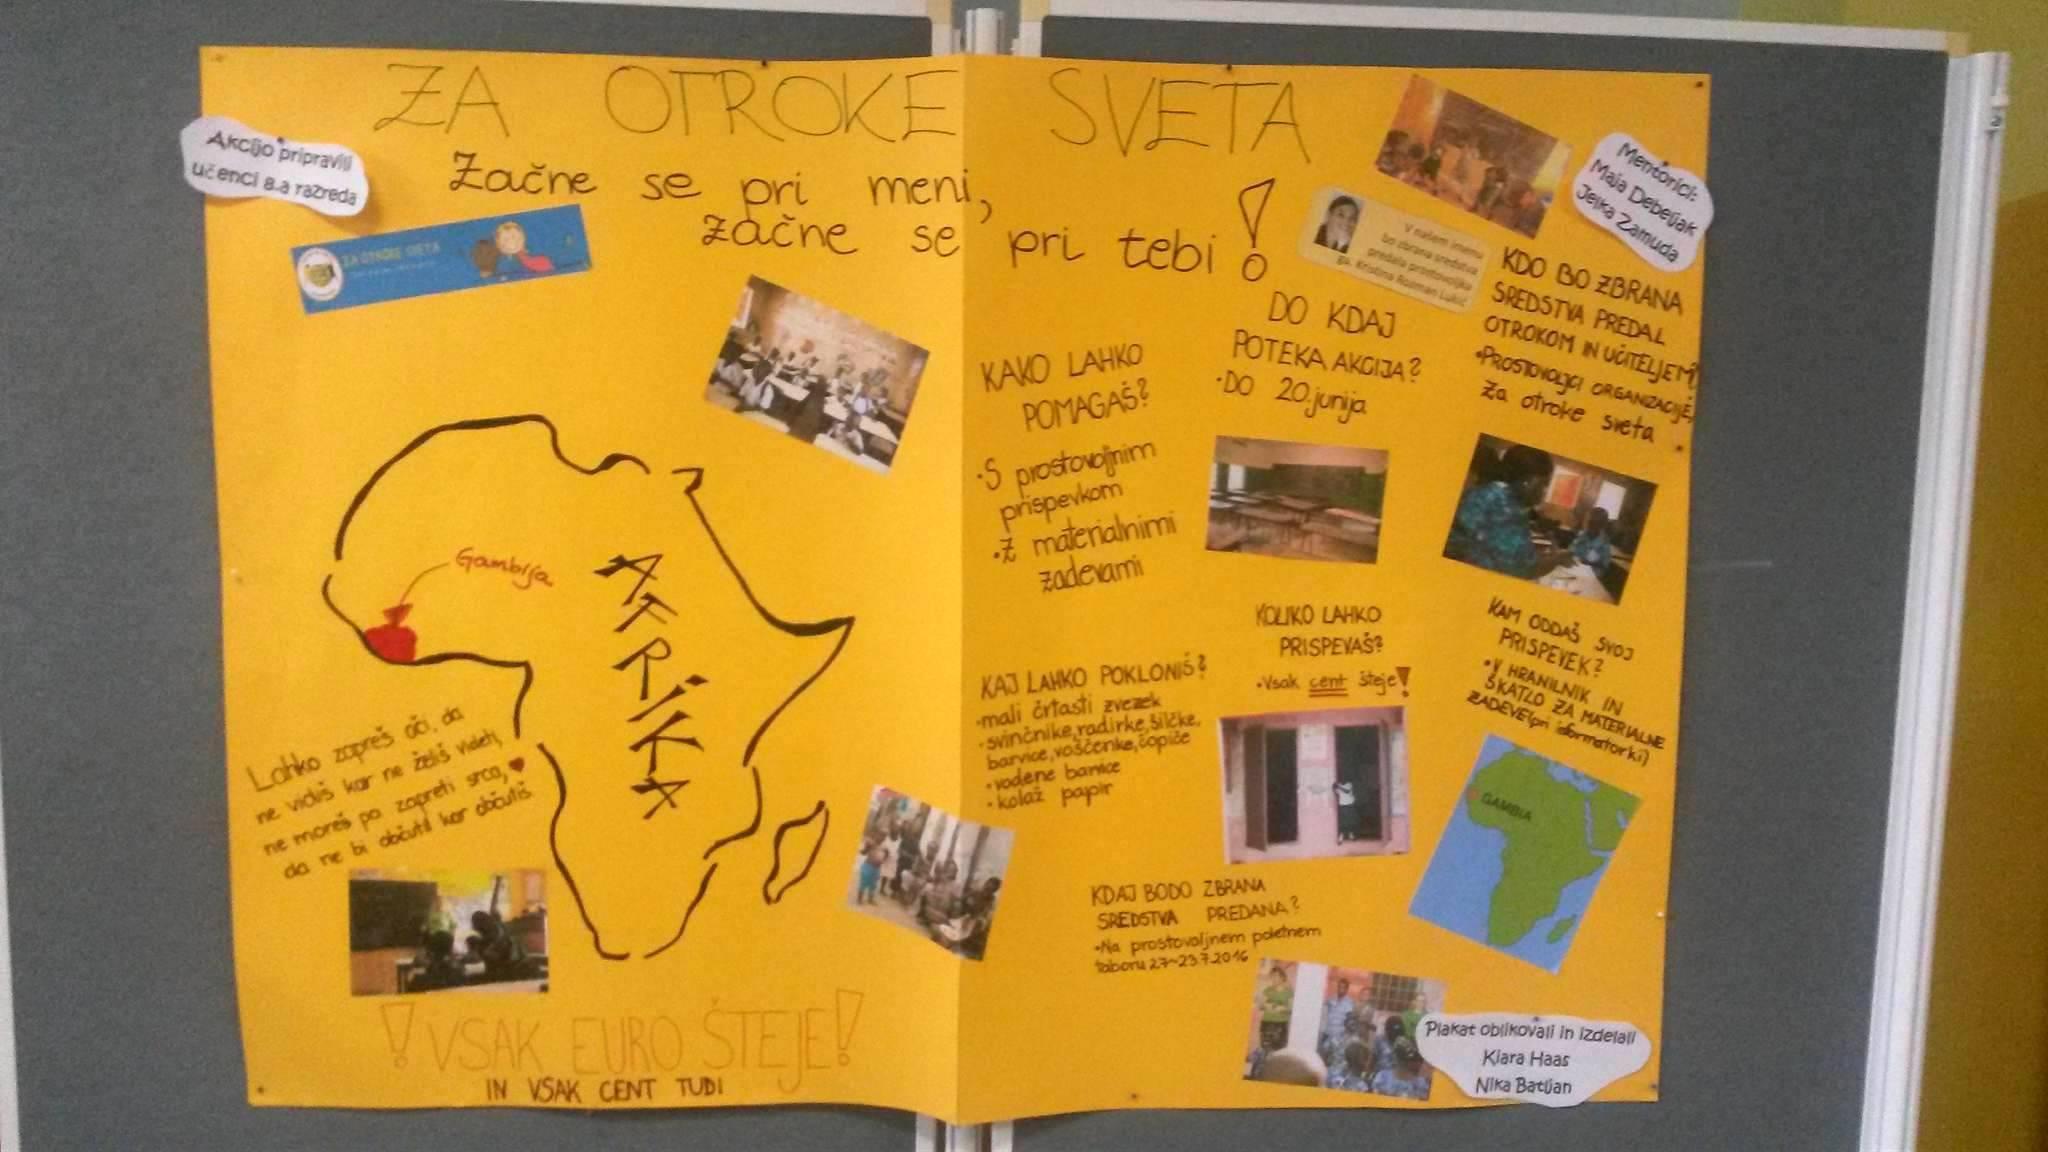 ZA OTROKE SVETA
Začne se pri meni,
začne se pri tebi!
Akcijo pripravili
učenci 8.a razreda
ZA OTROKE SVETA
Gambija
AFRIKA
Lahko zapreš oči, da
ne vidiš kar ne želiš videti,
ne moreš pa zapreti srca,
da ne bi občutil kar občutiš.
! VSAK EURO ŠTEJE!
IN VSAK CENT TUDI
KAKO LAHKO
POMAGAŠ?
•S prostovoljnim
prispevkom
•Z materialnimi
zadevami
KAJ LAHKO POKLONIŠ?
•mali črtasti zvezek
•svinčnike, radirke, šilčke,
barvice, voščenke, čopiče
•vodene barvice
•kolaž papir
DO KDAJ
POTEKA AKCIJA?
•DO 20.junija
KOLIKO LAHKO
PRISPEVAŠ?
•Vsak cent šteje!
KDAJ BODO ZBRANA
SREDSTVA PREDANA?
•Na prostovoljnem poletnem
taboru 2.7-23.7.2016
V našem imenu
bo zbrana sredstva
predala prostovoljka
ga. Kristina Rozman Lukić
Mentorici:
Maja Debeljak
Jelka Zamuda
KDO BO ZBRANA
SREDSTVA PREDAL
OTROKOM IN UČITELJEM?
•PROSTOVOLJCI ORGANIZACIJE,
Za otroke sveta
KAM ODDAŠ SVOJ
PRISPEVEK?
•V HRANILNIK IN
ŠKATLO ZA MATERIALNE
ZADEVE(pri informatorki)
GAMBIA
Plakat oblikovali in izdelali
Kiara Haas
Nika Batljan